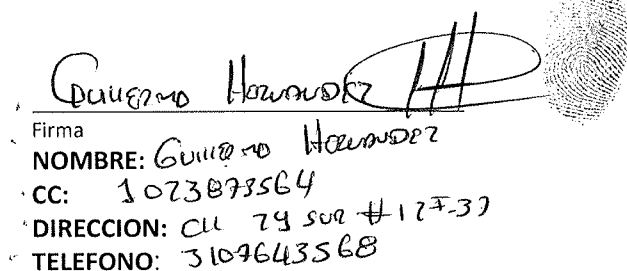 Guillermo Hernandez
Firma
NOMBRE: Guillermo Hernandez
CC: 1023873564
DIRECCION: Cll 79 sur #127-37
TELEFONO: 3107643568